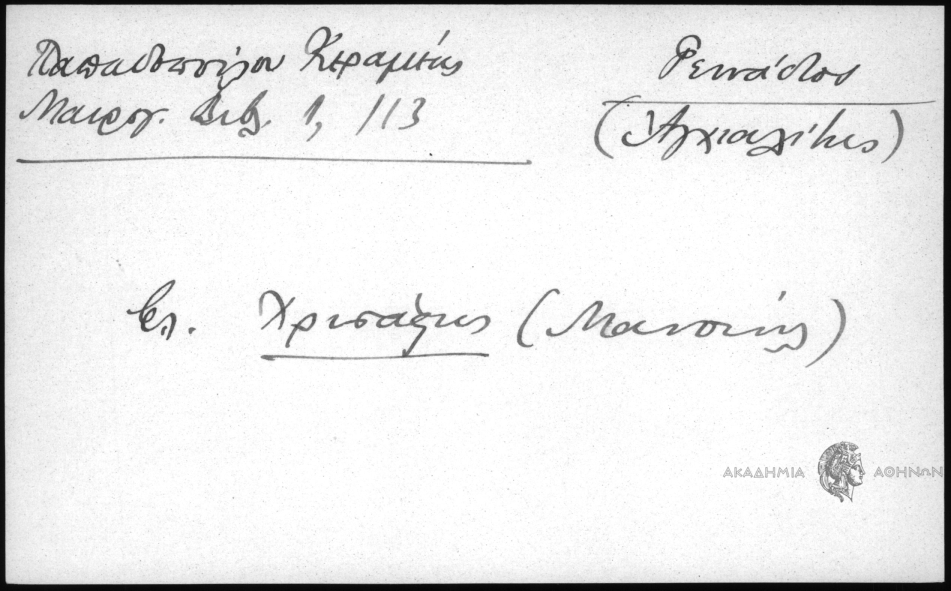 Παπαδοπούλου Κεραμεύς
Μαυρογ. Βιβλ. 1, 113
Ρεινάδος
(Ἀγχιαλίτης)
βλ. Χρυσάφης (Μανουήλ)
ΑΚΑΔΗΜΙΑ ΑΘΗΝΩΝ